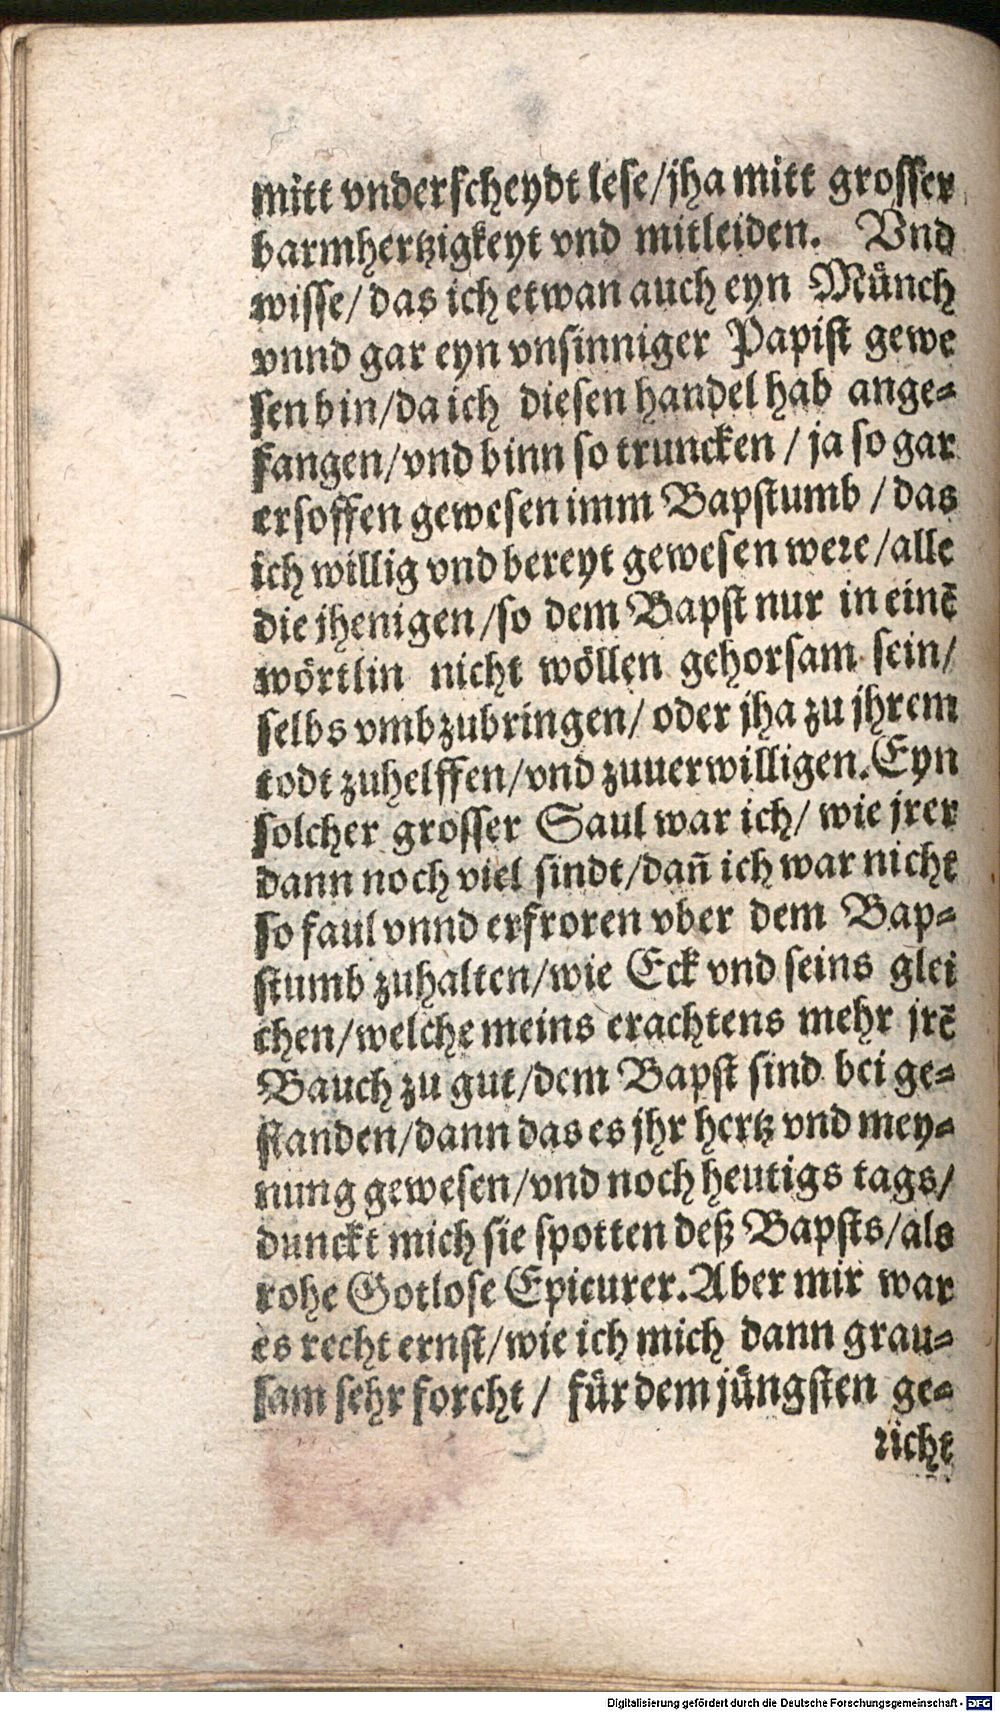 mitt vnderscheydt lese/jha mitt grosser
barmhertzigkeyt vnd mitleiden. Vnd
wisse/ das ich etwan auch eyn Münch
vnnd gar eyn vnsinniger Papist gewe
sen bin/da ich diesen handel hab ange-
fangen/vnd binn so truncken / ja so gar
ersoffen gewesen imm Bapstumb / das
ich willig vnd bereyt gewesen were/alle
die jhenigen/so dem Bapst nur in einē
wörtlin nicht wöllen gehorsam sein/
selbs vmbzubringen/ oder jha zu jhrem
todt zuhelffen/vnd zuuerwilligen.Eyn
solcher grosser Saul war ich/ wie jrer
dann noch viel sindt/dañ ich war nicht
so faul vnnd erfroren vber dem Bap-
stumb zuhalten/wie Eck vnd seins glei
chen/welche meins erachtens mehr jrē
Bauch zu gut/dem Bapst sind bei ge-
standen/dann das es jhr hertz vnd mey-
nung gewesen/vnd noch heutigs tags/
dunckt mich sie spotten deß Bapsts/als
rohe Gotlose Epicurer.Aber mir war
es recht ernst/wie ich mich dann grau-
sam sehr forcht / für dem jüngsten ge-
richt
Digitalisierung gefördert durch die Deutsche Forschungsgemeinschaft - DFG